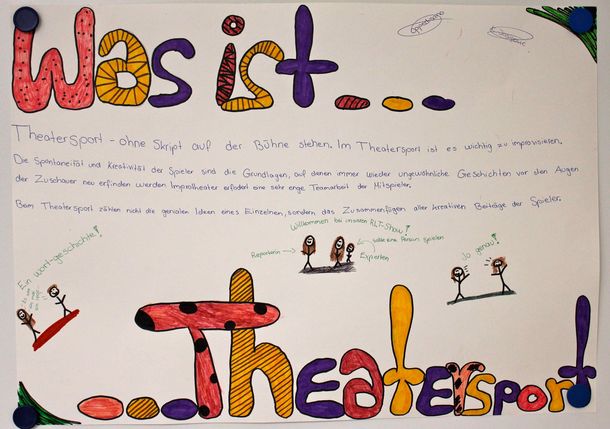 Was ist...
Theatersport - ohne Skript auf der Bühne stehen. Im Theatersport ist es wichtig zu improvisieren.
Die Spontaneität und Kreativität der Spieler sind die Grundlagen, auf denen immer wieder ungewöhnliche Geschichten vor den Augen
der Zuschauer neu erfinden werden Improtheater erfodert eine sehr enge Teamarbeit der Mitspieler.
Beim Theatersport zählen nicht die genialen Ideen eines Einzelnen, sondern das Zusammenfügen aller kreativen Beiträge der Spieler.
Ein wort-geschichte!
Willkommen bei unserer RLT-Show!
Reporterin
eine Person spielen
Experten
Jo genau!
...Theatersport